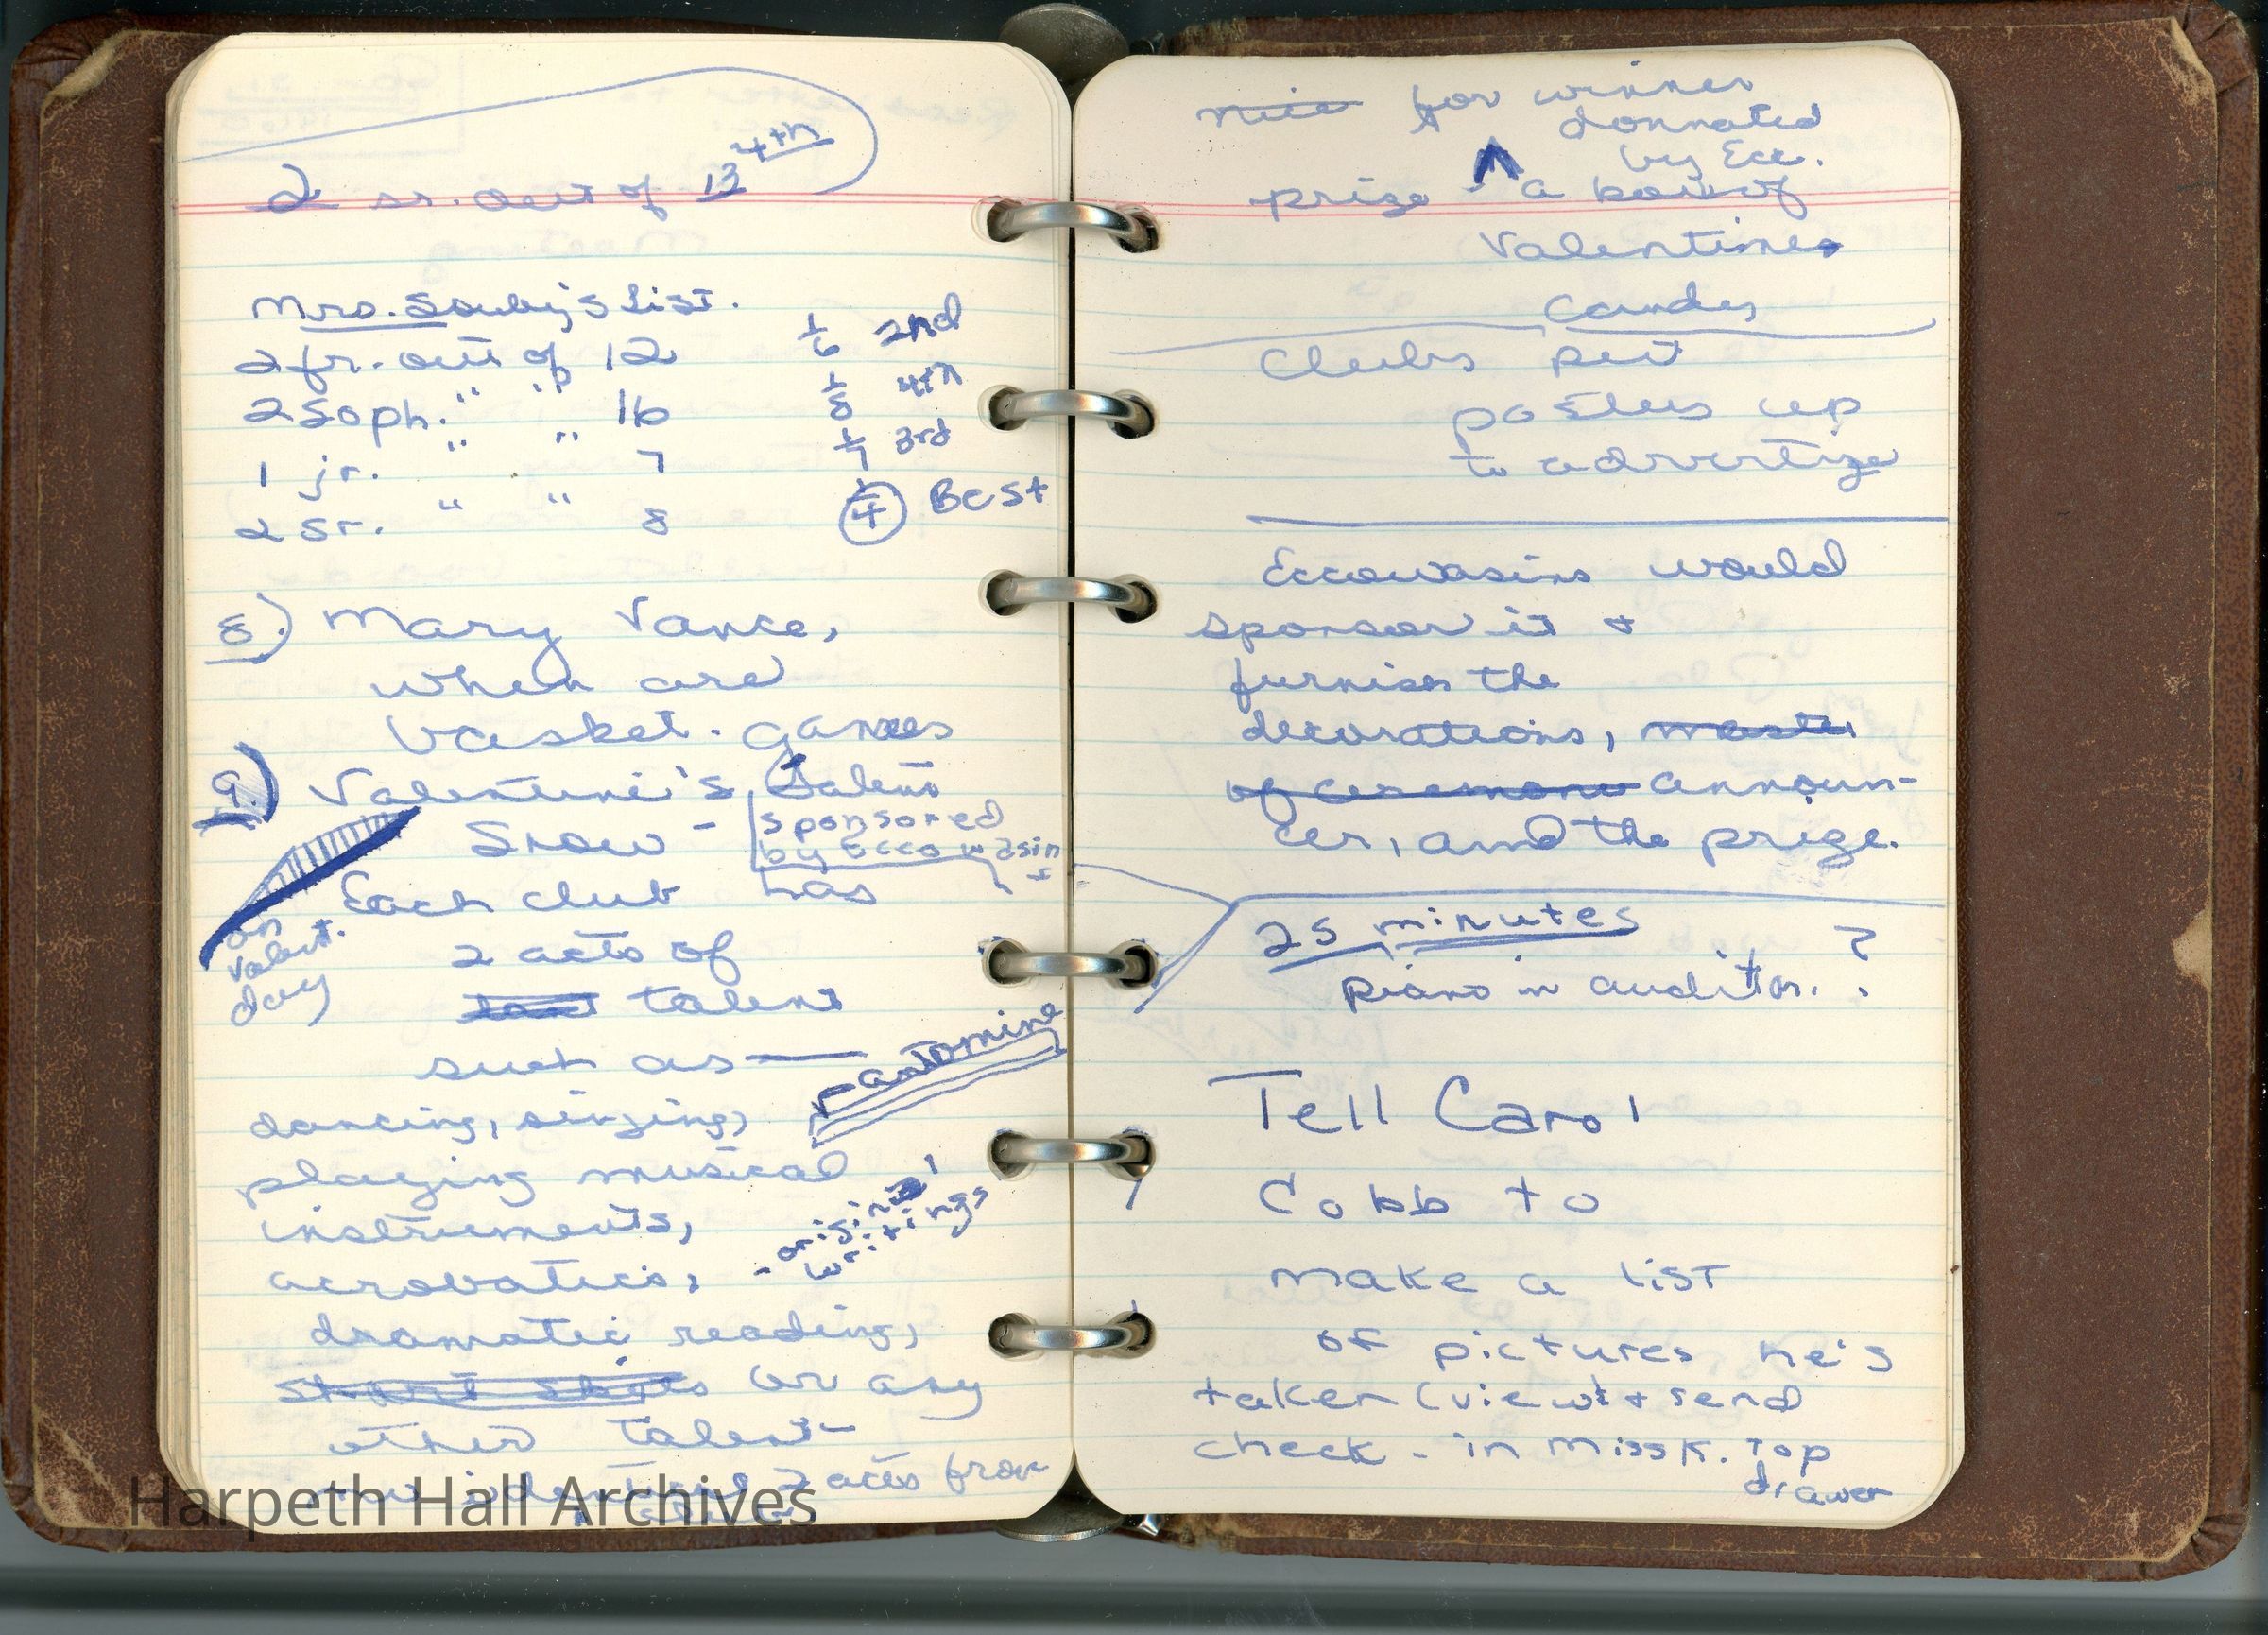 2 sr. out of 13 4th
Mrs. Souby's List.
2 fr. out of 12 1/6 2nd
2 soph. " " 16 1/8 4th
1 jr. " " 7 1/7 3rd
2 sr. " " 8 1/4 Best
8.) Mary Vance,
when are
basket. games
9.) Valentine's Talent
Show - sponsored
by Eccowasin
s
Each club has
on
valent.
day
2 acts of
talent
such as —
pantomine
dancing, singing,
playing musical
instruments,
- original
writings
acrobatics,
dramatic reading,
short skits or any
other talent
2 acts from
Harpeth Hall Archives
for winner
donnated
by Ecc.
prize ^ a box of
Valentine
Candy
Clubs put
posters up
to advertize
Eccowasins would
sponsor it +
furnish the
decorations, master
of ceremony announ-
cer, and the prize.
25 minutes
piano in auditor. ?
Tell Carol
Cobb to
make a list
of pictures he's
taken (view) + send
check - in Miss K. top
drawer